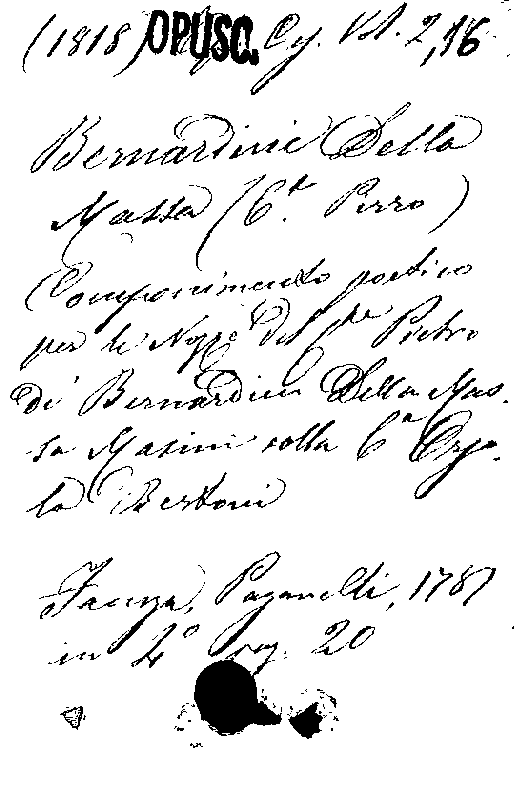 (1818) OPUSC. Cy. Vol. 2,16
Bernardini Della
Massa (C.te Pirro)
Componimento poetico
per le Nozze del C.te Pietro
di Bernardini Della Mas-
sa Masini colla C.a Orso-
la Bertoni
Faenza, Paganelli, 1787
in 4° pag. 20